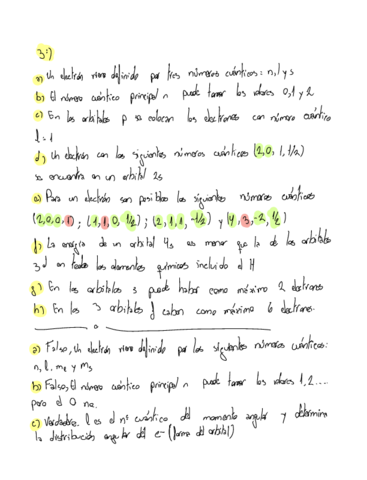 3º)
a) Un electrón viene definido por tres números cuánticos: n, l y s
b) El número cuántico principal n puede tomar los valores 0, 1 y 2
c) En los orbitales p se colocan los electrones con número cuántico
l = 1
d) Un electrón con los siguientes números cuánticos (2,0, 1, 1/2)
se encuentra en un orbital 2s
e) Para un electrón son posibles los siguientes números cuánticos
(2,0,0,1) ; (1,1,0,1/2) ; (2,1,1,-1/2) y (4,3,-2,1/2)
f) La energía de un orbital 4s es menor que la de los orbitales
3d en todos los elementos químicos incluido el H
g) En los orbitales s puede haber como máximo 2 electrones
h) En los 3 orbitales f caben como máximo 6 electrones.
a) Falso, Un electrón viene definido por los siguientes números cuánticos:
n, l, me y ms
b) Falso, El número cuántico principal n puede tomar los valores 1,2....
pero el 0 no.
c) Verdadero. l es el nº cuántico del momento angular y determina
la distribución angular del e- (forma del orbital)